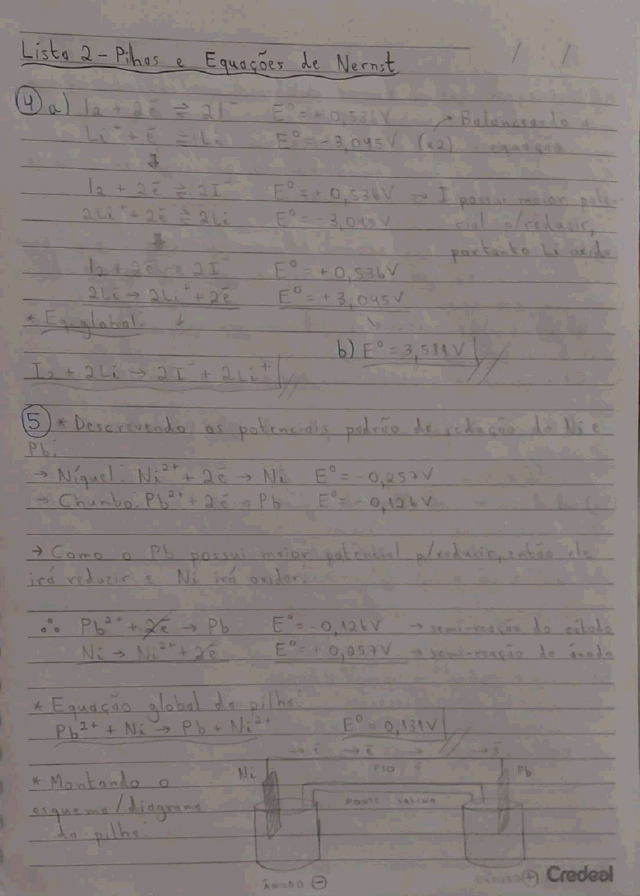 Lista 2 - Pilhas e Equações de Nernst
4 a) I₂ + 2e⁻ ⇌ 2I⁻ E° = +0,536V → Balanceando a
Li⁺ + e⁻ ⇌ Li E° = -3,045V (x2) equação
↓
I₂ + 2e⁻ ⇌ 2I⁻ E° = +0,536V → I possui maior poten-
2Li⁺ + 2e⁻ ⇌ 2Li E° = -3,045V cial p/reduzir,
portanto Li oxida
↓
I₂ + 2e⁻ → 2I⁻ E° = +0,536V
2Li → 2Li⁺ + 2e⁻ E° = +3,045V
* Eq. global: ↓
b) E° = 3,581V
I₂ + 2Li → 2I⁻ + 2Li⁺
5 * Descrevendo os potenciais padrão de redução do Ni e
Pb:
→ Níquel: Ni²⁺ + 2e⁻ → Ni E° = -0,257V
→ Chumbo: Pb²⁺ + 2e⁻ → Pb E° = -0,126V
→ Como o Pb possui maior potencial p/reduzir, então ele
irá reduzir e Ni irá oxidar.
∴ Pb²⁺ + 2e⁻ → Pb E° = -0,126V → semi-reação do cátodo
Ni → Ni²⁺ + 2e⁻ E° = +0,257V → semi-reação do ânodo
* Equação global da pilha:
Pb²⁺ + Ni → Pb + Ni²⁺ E° = 0,131V
→ e⁻ → e⁻ → → e⁻
Ni FIO Pb
* Montando o
esquema/diagrama PONTE SALINA
da pilha:
ÂNODO ⊖ CÁTODO ⊕ Credeal